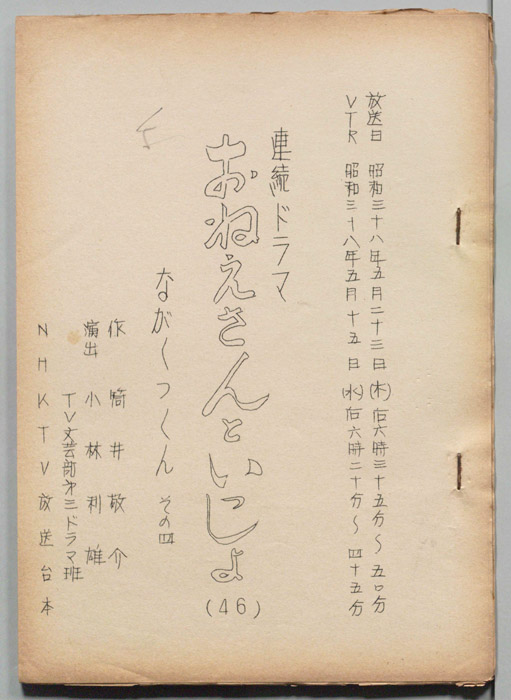 放送日 昭和三十八年五月二十三日(木)后六時三十五分〜五〇分
VTR 昭和三十八年五月十五日(水)后六時二十分〜四十五分
連続ドラマ
おねえさんといっしょ
(46)
ながくつくん その四
作 筒井敬介
演出 小林利雄
TV文芸部第三ドラマ班
NHKTV放送台本